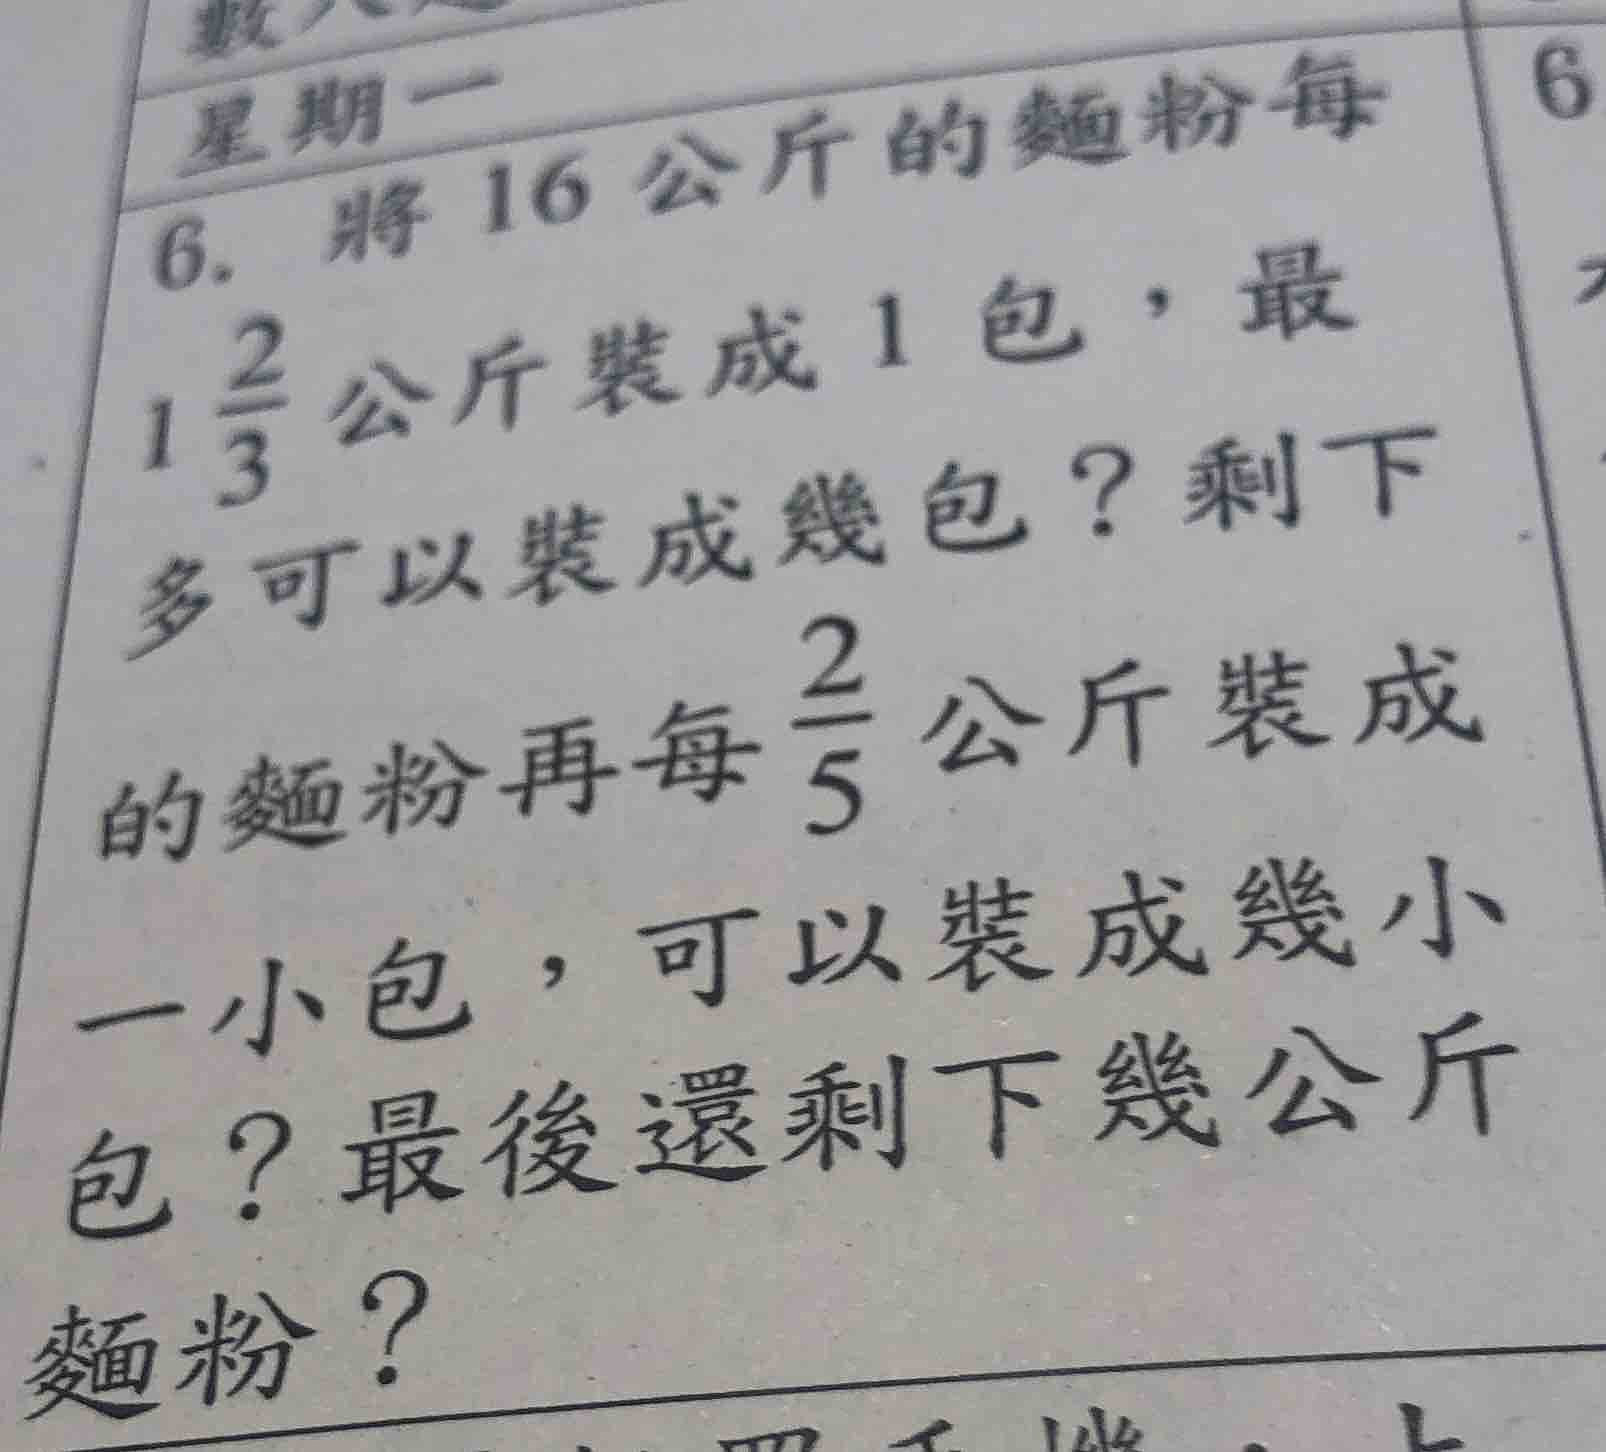 數
星期一
6. 將 16 公斤的麵粉每
1 2/3 公斤裝成 1 包，最
多可以裝成幾包？剩下
的麵粉再每 2/5 公斤裝成
一小包，可以裝成幾小
包？最後還剩下幾公斤
麵粉？
6